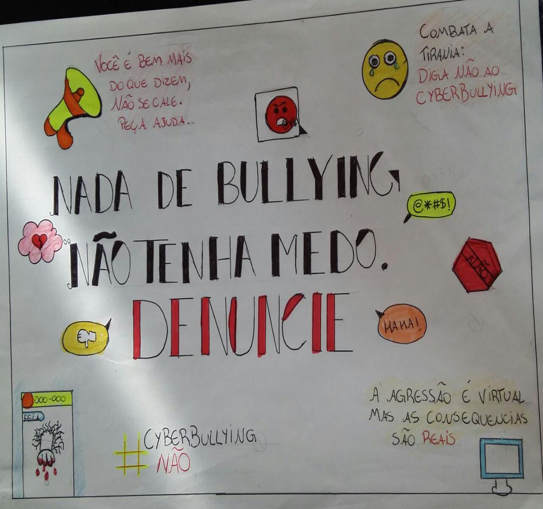 VOCÊ É BEM MAIS
DO QUE DIZEM,
NÃO SE CALE.
PEÇA AJUDA...
COMBATA A
TIRANIA:
DIGA NÃO AO
CYBERBULLYING
NADA DE BULLYING,
@*#$!
NÃO TENHA MEDO.
NÃO
DENUNCIE
HAHA!
000-000
A AGRESSÃO É VIRTUAL
MAS AS CONSEQUENCIAS
SÃO REAIS
#CYBERBULLYING
NÃO